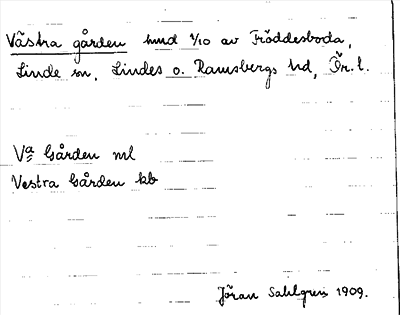 Västra gården hmd 9/10 av Fröddesboda,
Linde sn, Lindes o. Ramsbergs hd, Ör. l.
Va Gården ml
Vestra Gården kb
Jöran Sahlgren 1909.